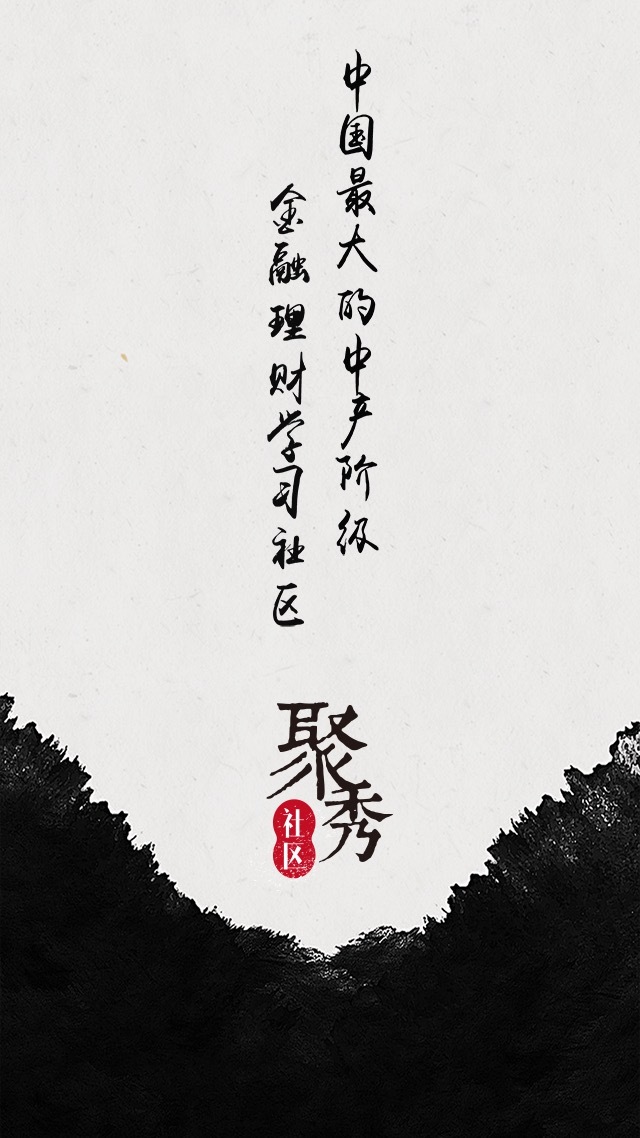 中国最大的中产阶级
金融理财学习社区
聚秀
社区